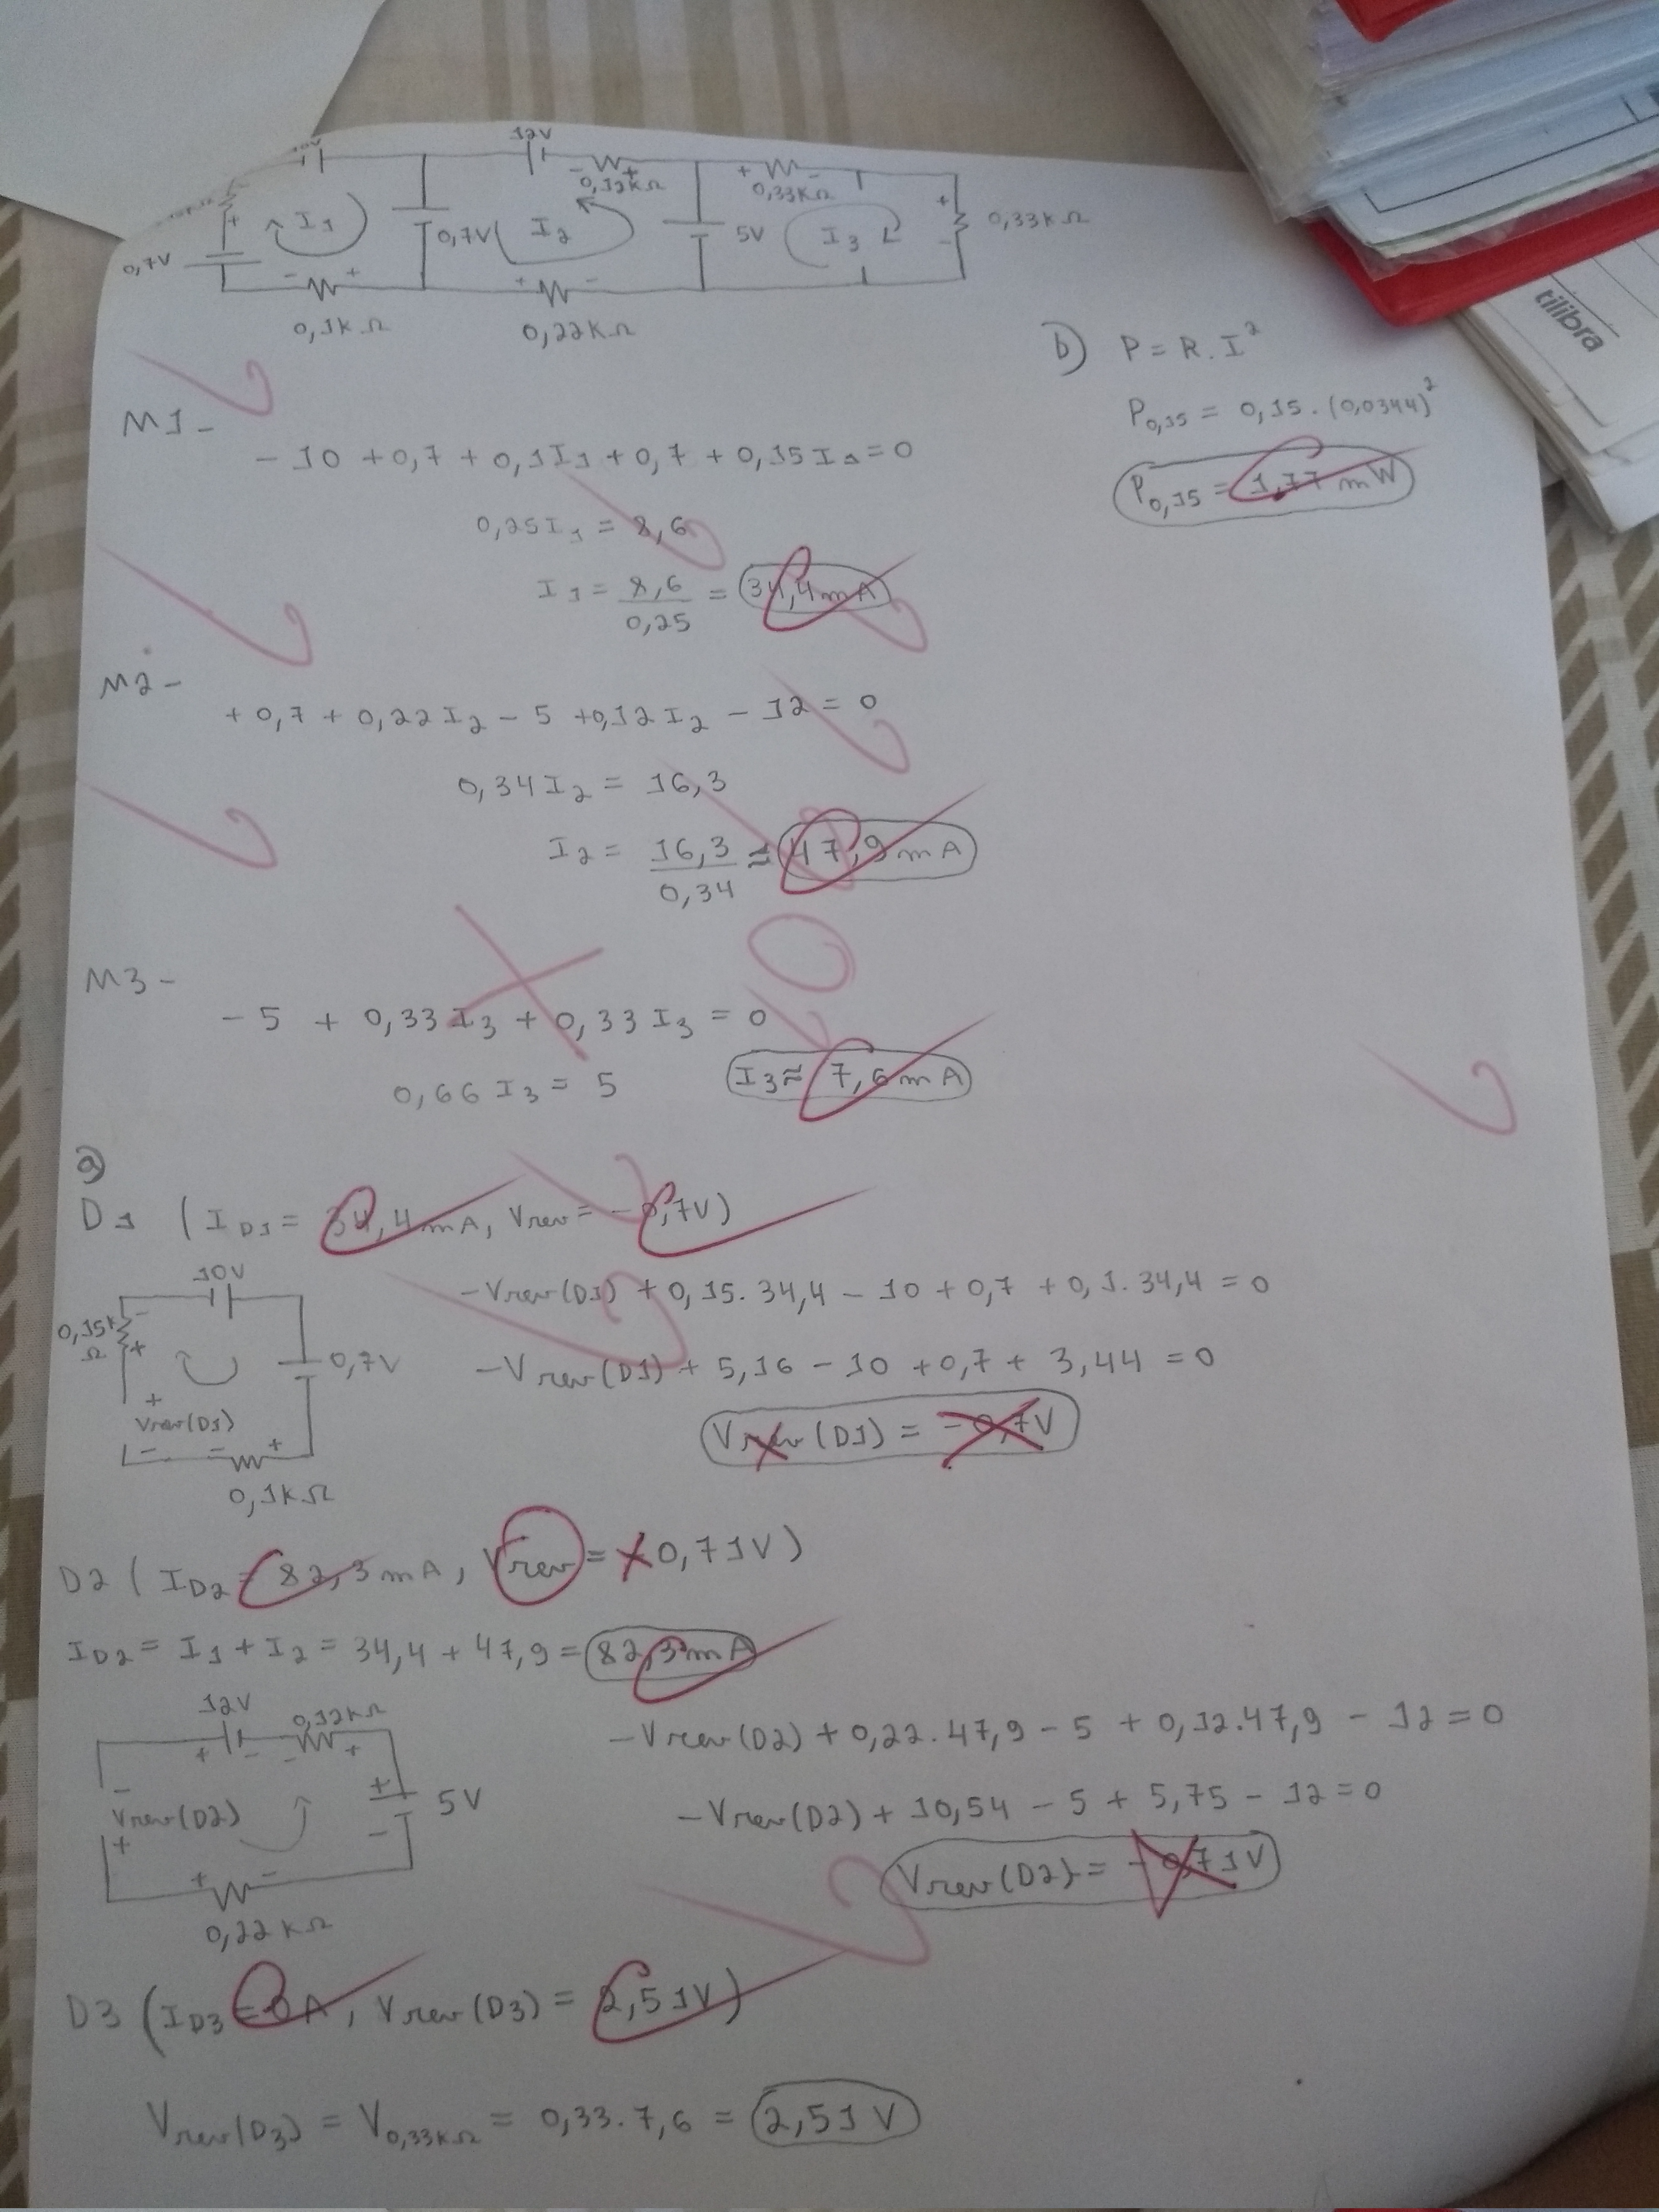 12V
0,12KΩ
0,33KΩ
I1
0,7V
I2
5V
I3
0,33KΩ
0,7V
0,1KΩ
0,22KΩ
tilibra
b) P = R.I²
P0,15 = 0,15.(0,0344)²
P0,15 = 1,77 mW
M1-
-10 + 0,7 + 0,1I1 + 0,7 + 0,15I1 = 0
0,25I1 = 8,6
I1 = 8,6/0,25 = 34,4mA
M2-
+0,7 + 0,22I2 - 5 + 0,12I2 - 12 = 0
0,34I2 = 16,3
I2 = 16,3/0,34 ≈ 47,9mA
M3-
-5 + 0,33I3 + 0,33I3 = 0
0,66I3 = 5 I3 ≈ 7,6mA
a)
D1 (ID1 = 34,4mA, Vrev = -0,7V)
10V
0,15KΩ
0,7V
Vrev(D1)
0,1KΩ
-Vrev(D1) + 0,15.34,4 - 10 + 0,7 + 0,1.34,4 = 0
-Vrev(D1) + 5,16 - 10 + 0,7 + 3,44 = 0
Vrev(D1) = -0,7V
D2 (ID2 = 82,3mA, Vrev = -0,71V)
ID2 = I1 + I2 = 34,4 + 47,9 = 82,3mA
12V
0,12KΩ
5V
Vrev(D2)
0,22KΩ
-Vrev(D2) + 0,22.47,9 - 5 + 0,12.47,9 - 12 = 0
-Vrev(D2) + 10,54 - 5 + 5,75 - 12 = 0
Vrev(D2) = -0,71V
D3 (ID3 = 0A, Vrev(D3) = 2,51V)
Vrev(D3) = V0,33KΩ = 0,33.7,6 = 2,51V